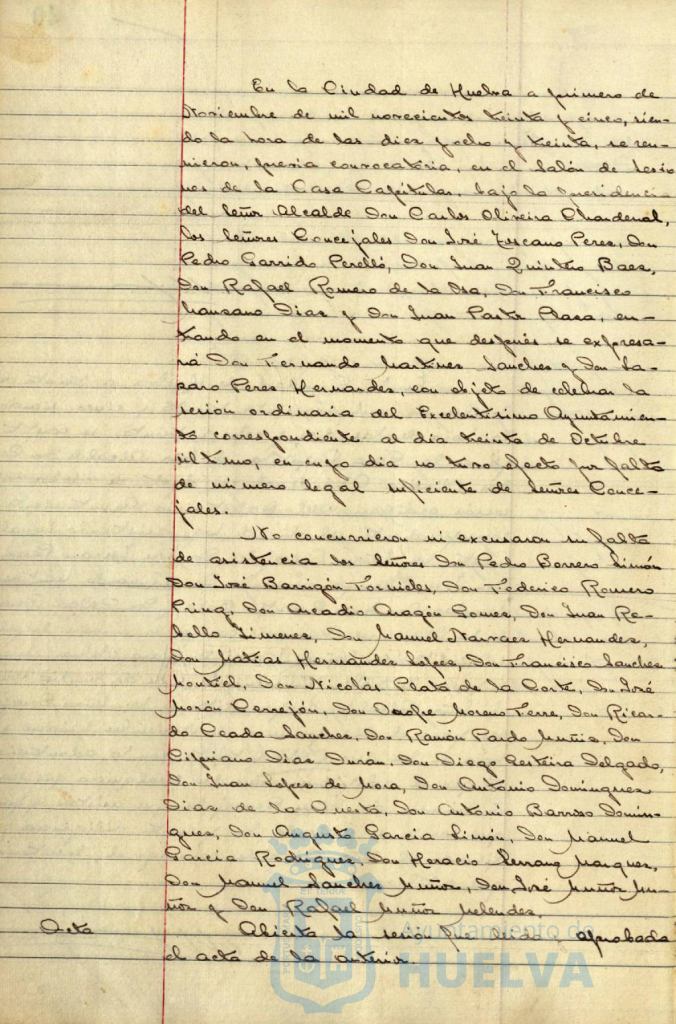 En la Ciudad de Huelva a primero de
Noviembre de mil novecientos treinta y cinco, sien-
do la hora de las diez y ocho y treinta, se reu-
nieron, previa convocatoria, en el Salón de Sesio
nes de la Casa Capitular, bajo la presidencia
del Señor Alcalde Don Carlos Oliveira Chardenal,
los Señores Concejales Don José Toscano Perez, Don
Pedro Garrido Perelló, Don Juan Quintero Baez,
Don Rafael Romero de la Osa, Don Francisco
Manzano Diaz y Don Juan Parta Plaza, en-
trando en el momento que después se expresa-
rá Don Fernando Martinez Sanchez y Don La-
zaro Perez Hernandez, con objeto de celebrar la
sesión ordinaria del Excelentisimo Ayuntamien-
to correspondiente al dia treinta de Octubre
último, en cuyo dia no tuvo efecto por falta
de número legal suficiente de Señores Conce-
jales.
No concurrieron ni excusaron su falta
de asistencia los Señores Don Pedro Borrero Limón
Don José Barrigón Fornieles, Don Federico Romero
Prinq, Don Arcadio Aragón Gomez, Don Juan Re-
bollo Jimenez, Don Manuel Narvaez Hernandez,
Don Matias Hernández Lopez, Don Francisco Sanchez
Montiel, Don Nicolás Plata de la Corte, Don José
Morón Cerrejón, Don Onofre Moreno Ferre, Don Ricar-
do Ceada Sanchez, Don Ramón Pardo Muñiz, Don
Cipriano Diaz Durán, Don Diego Gesteira Delgado,
Don Juan Lopez de Mora, Don Antonio Dominguez
Diaz de la Cuesta, Don Antonio Barroso Domin-
guez, Don Augusto Garcia Limón, Don Manuel
Garcia Rodriguez, Don Horacio Serrano Marquez,
Don Manuel Sanchez Muñoz, Don José Muñoz Mu-
ñoz y Don Rafael Muñoz Melendez.
Acta
Abierta la sesión fué leida y aprobada
el acta de la anterior.
Ayuntamiento de
HUELVA